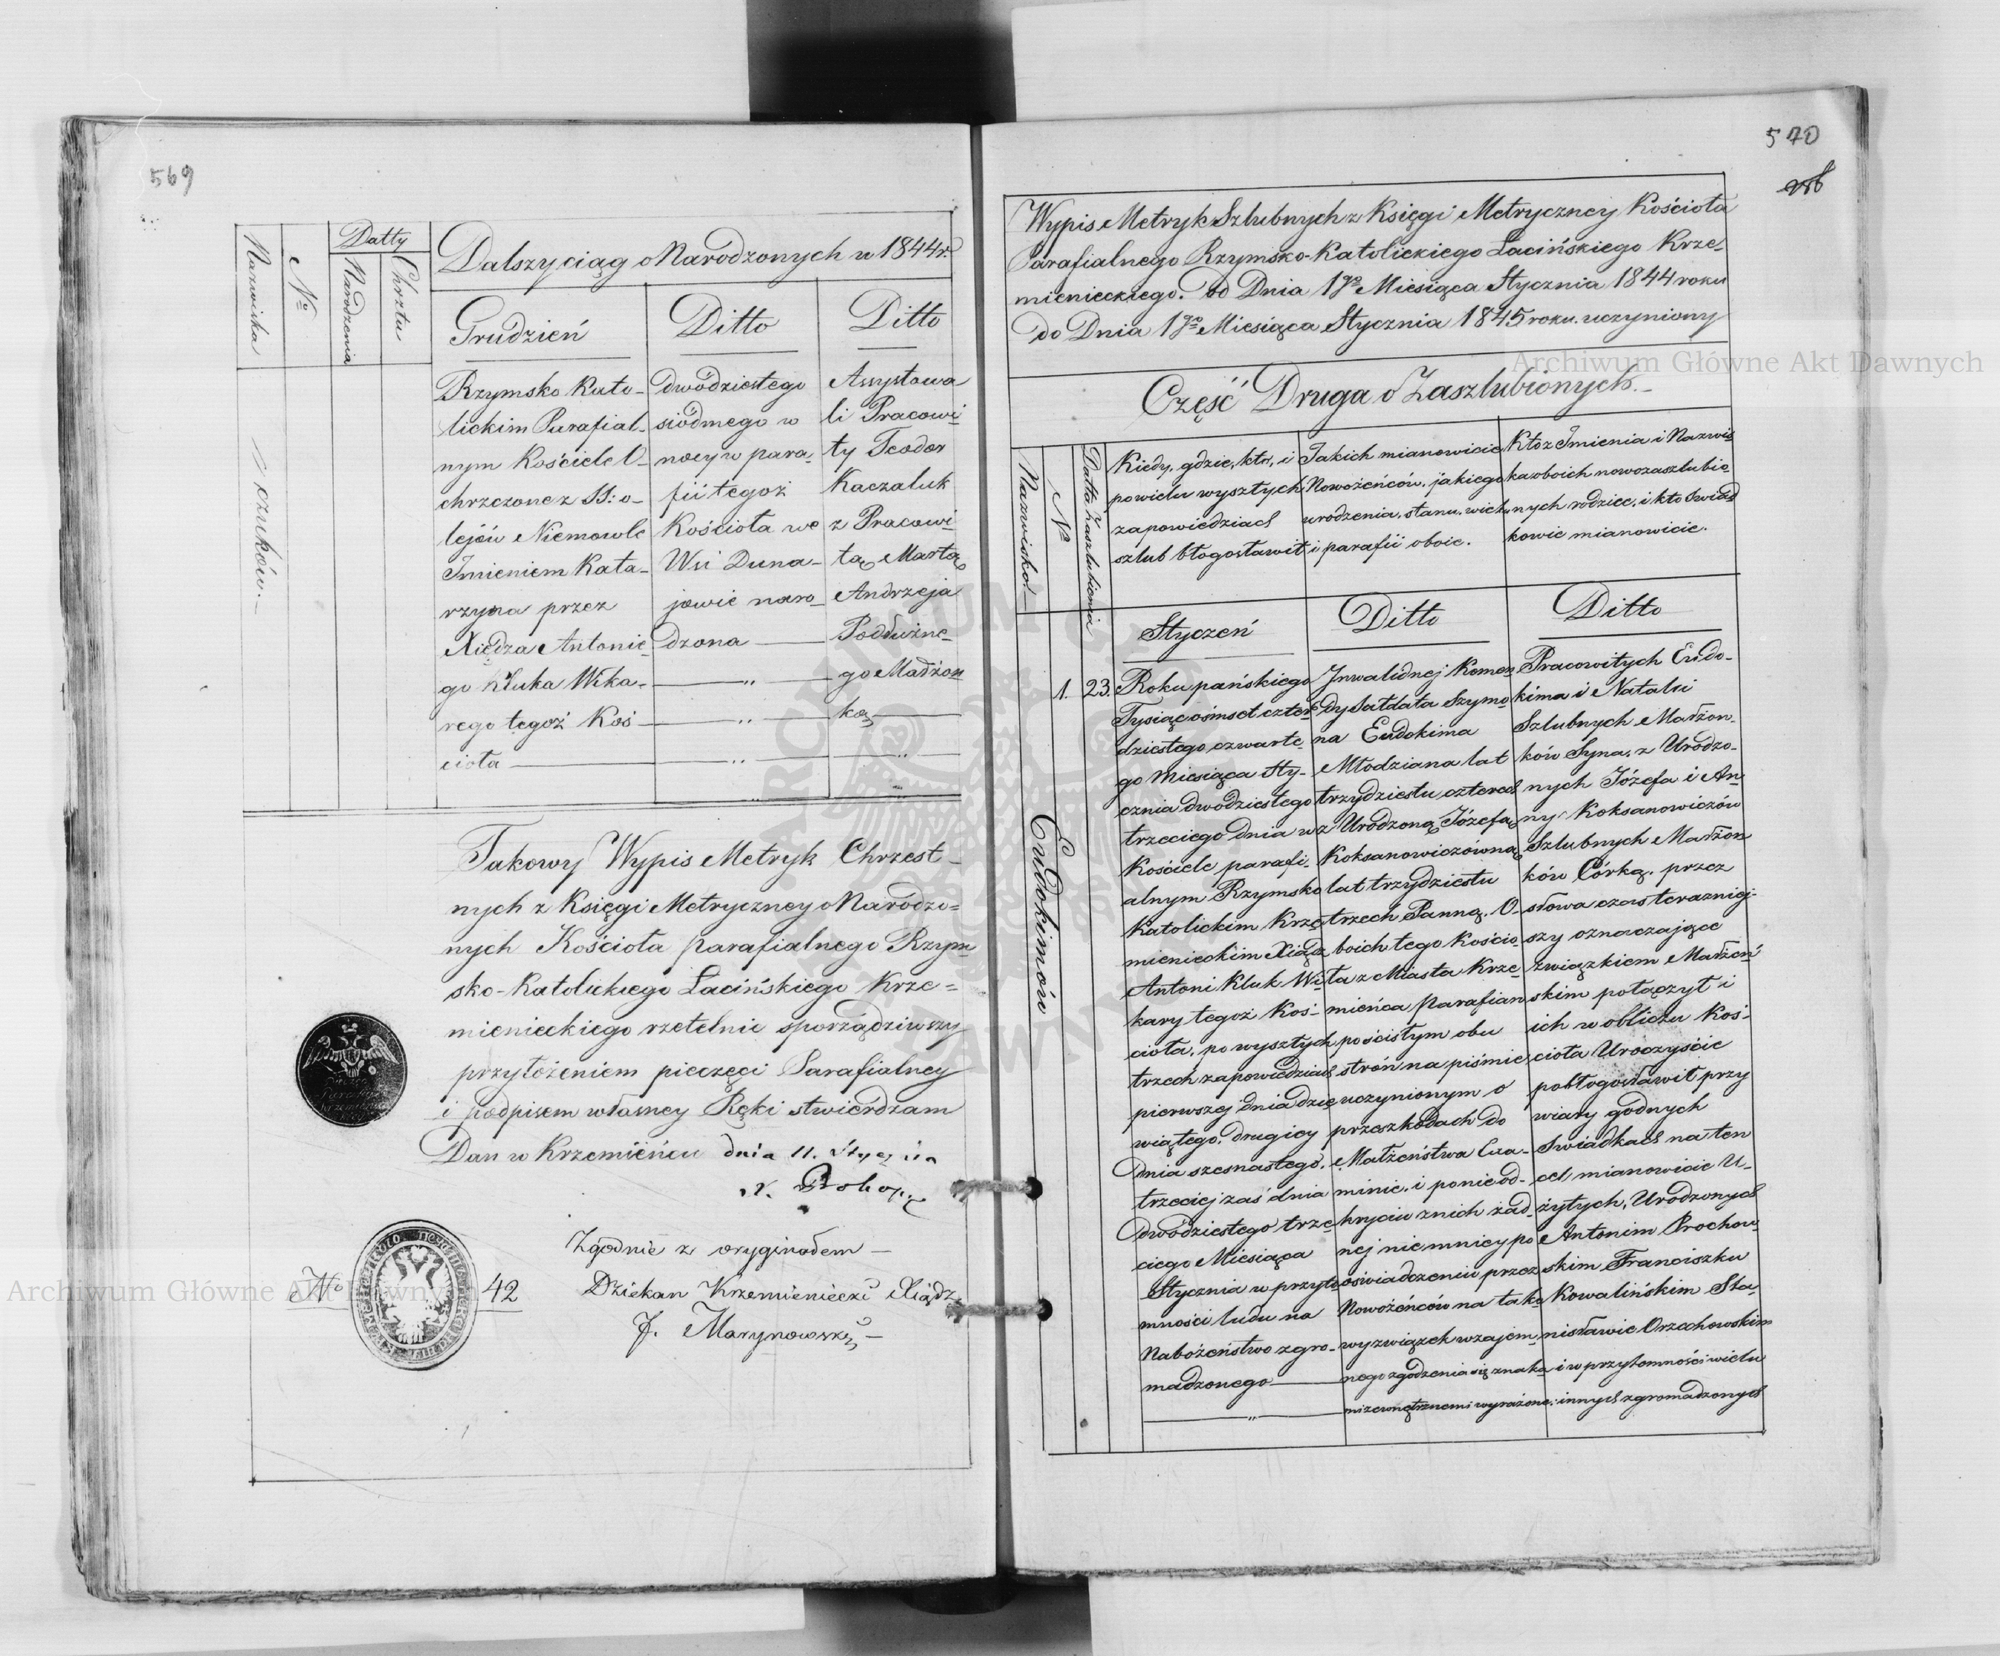 569
Datty
Nazwiska
No
Narodzenia
Chrztu
Dalszy ciąg o Narodzonych w 1844 r.
Grudzień
Rzymsko Kato-
lickim Parafial-
nym Kościele O-
chrzczone z SS: o-
lejów Niemowle
Imieniem Kata-
rzyna przez
Xiędza Antonie-
go Kluka Wika-
rego tegoż Koś-
cioła
Ditto
dwódziestego
siódmego w
nocy w para-
fii tegoż
Kościoła we
Wsi Duna-
jowie naro-
dzona
Ditto
Assystowa
li Pracowi-
ty Teodor
Kaczaluk
z Pracowi
tą Martą
Andrzeja
Poddużne-
go Małżon
ką
Takowy Wypis Metryk Chrzest-
nych z Księgi Metryczney o Narodzo-
nych Kościoła parafialnego Rzym-
sko-Katolickiego Łacińskiego Krze-
mienieckiego rzetelnie sporządziwszy
przyłożeniem pieczęci Parafialney
i podpisem własney Ręki stwierdzam
Dan w Krzemieńcu dnia 11. Stycznia
Zgodnie z oryginałem
Dziekan Krzemieniecki Xiądz
J. Marynowski
No 42
570
Wypis Metryk Szlubnych z Księgi Metryczney Kościoła
Parafialnego Rzymsko-Katolickiego Łacińskiego Krze-
mienieckiego. od Dnia 1go Miesiąca Stycznia 1844 roku
do Dnia 1go Miesiąca Stycznia 1845 roku. uczyniony
Część Druga o Zaszlubionych.
Nazwiska.
No
Datta Zaszlubienia
Kiedy, gdzie, kto, i
po wielu wyszłych
zapowiedziach
szlub błogosławił
Jakich mianowicie
Nowożeńców, jakiego
urodzenia, stanu, wieku
i parafii oboie.
Kto z Imienia i Nazwis
ka oboich nowozaszlubio
nych rodzice, i kto Swiad
kowie mianowicie.
Eudokimów
1.
23.
Styczeń
Roku pańskiego
Tysiąc ośmset czter-
dziestego czwarte-
go Miesiąca Sty-
cznia dwódziestego
trzeciego dnia w
Kościele parafi-
alnym Rzymsko
Katolickim Krze
mienieckim Xiądz
Antoni Kluk Wi-
kary tegoż Koś-
cioła, po wyszłych
trzech zapowiedziach
pierwszej dnia dzie
wiątego, drugiey
dnia szesnastego,
trzeciej zaś dnia
dwódziestego trze-
ciego Miesiąca
Stycznia w przyto
mności ludu na
Nabożeństwo zgro-
madzonego
Ditto
Inwalidnej Komen
dy Sałdata Szymo
na Eudokima
Młodziana lat
trzydziestu czterech
z Urodzoną Józefą
Koksanowiczówną
lat trzydziestu
trzech Panną. O-
boich tego Kościo-
ła z Miasta Krze-
mieńca Parafian
po ścisłym obu
strón na piśmie
uczynionym o
przeszkodach do
Małżeństwa Exa-
minie, i ponieod-
kryciu znich żad-
nej niemniey po
oświadczeniu przez
Nowożeńców na tako
wy związek wzajem
nego zgodzenia się znaka
mi zewnętrznemi wyrażone,
Ditto
Pracowitych Eudo-
kima i Natalii
Szlubnych Małżon-
ków Syna, z Urodzo-
nych Józefa i An
ny Koksanowiczów
Szlubnych Małżon
ków Córką, przez
słowa czas teraźniej-
szy oznaczające
związkiem Małżeń
skim połączył i
ich w obliczu Koś-
cioła Uroczyście
pobłogosławił przy
wiary godnych
Swiadkach na ten
cel mianowicie U-
żytych, Urodzonych
Antonim Prochow-
skim Franciszku
Kowalińskim Sta-
nisławie Orzechowskim
i w przytomności wielu
innych zgromadzonych
Archiwum Główne Akt Dawnych
Archiwum Główne Akt Dawnych